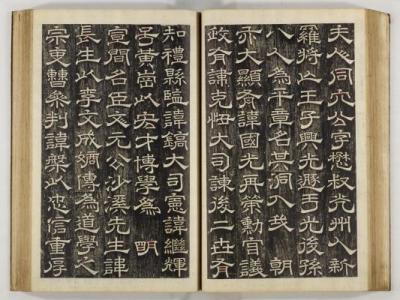 夫人同穴公字懋叔光州人新
羅將亡王子興光遯于光後孫
八人為平章名其洞入我 朝
亦大顯有諱國光再策勳官議
政有諱克忸大司諫後二世有
知禮縣監諱鎬大司憲諱繼輝
号黃崗以宏才博學為 明
宣間名臣文元公沙溪先生諱
長生以李文成嫡傳為道學之
宗吏曹參判諱槃以忠信重厚